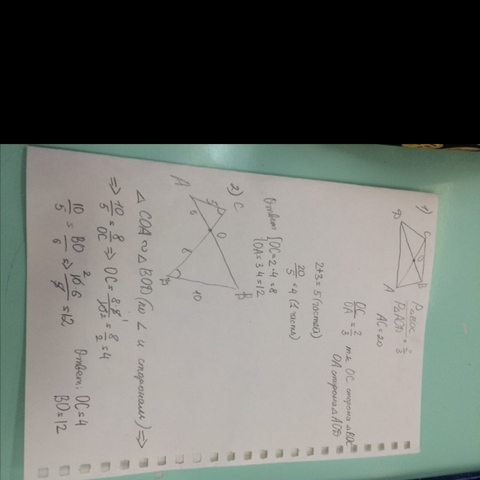 1)
C B
O
D A
P△BOC / P△AOD = 2/3
AC=20
OC/OA = 2/3 т.к OC сторона △BOC
OA сторона △AOD
2+3=5 (частей)
20/5 = 4 (1 часть)
Ответ: { OC=2·4=8
OA=3·4=12
2)
C
A 5 O
6
8
D 10 B
△COA ∾ △BOD (по ∠ и сторонам) ⇒
⇒ 10/5 = 8/OC ⇒ OC = 8·5/10 = 8/2 = 4
10/5 = BO/6 ⇒ 10·6/5 = 12
Ответ: OC=4
BO=12